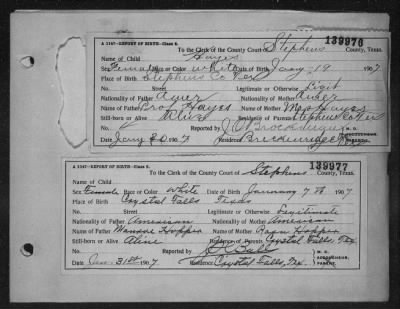 139976
A 1147—REPORT OF BIRTH—Class 5.
To the Clerk of the County Court of Stephens County, Texas.
Hayes
Sex Female Race or Color White Date of Birth Jany - 19 1907
Place of Birth Stephens Co Tex
Street Legitimate or Otherwise Legit
Nationality of Father Amer Nationality of Mother Amer
Name of Father Hayes Name of Mother Mrs Hayes
Still-born or Alive Alive Residence of Parents Stephens Co Tex
M. D.
ACCOUCHEUR,
PARENT.
Date Jany 20 1907 Residence Breckenridge
139977
A 1147—REPORT OF BIRTH—Class 5.
To the Clerk of the County Court of Stephens County, Texas.
Sex Female Race or Color White Date of Birth January 7th 1907
Place of Birth Crystal Falls Texas
Street Legitimate or Otherwise Legitimate
Nationality of Father American Nationality of Mother American
Name of Father Hopper Name of Mother Hopper
Still-born or Alive Alive Residence of Parents Crystal Falls, Tex.
Reported by
M. D.
ACCOUCHEUR,
PARENT.
Date Jan. 31st 1907 Residence Crystal Falls, Tex.